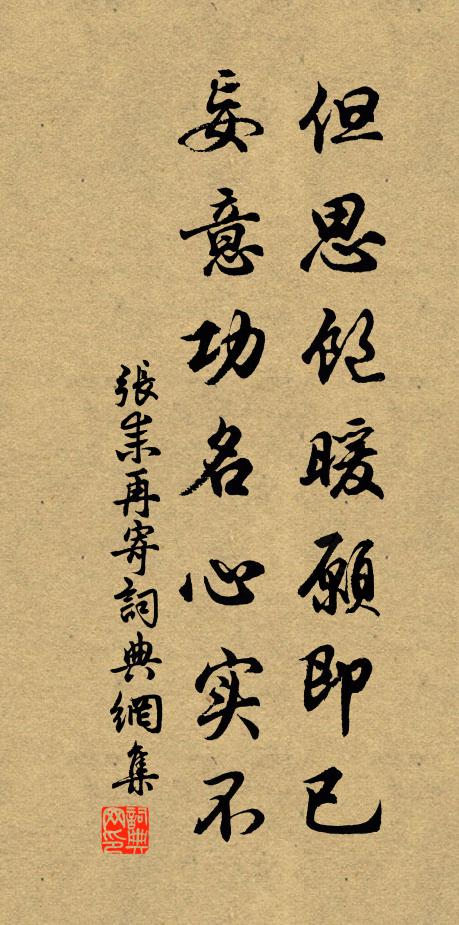 但思饱暖愿即已
妄意功名心实不
張耒再寄詞典網集
詞典网印